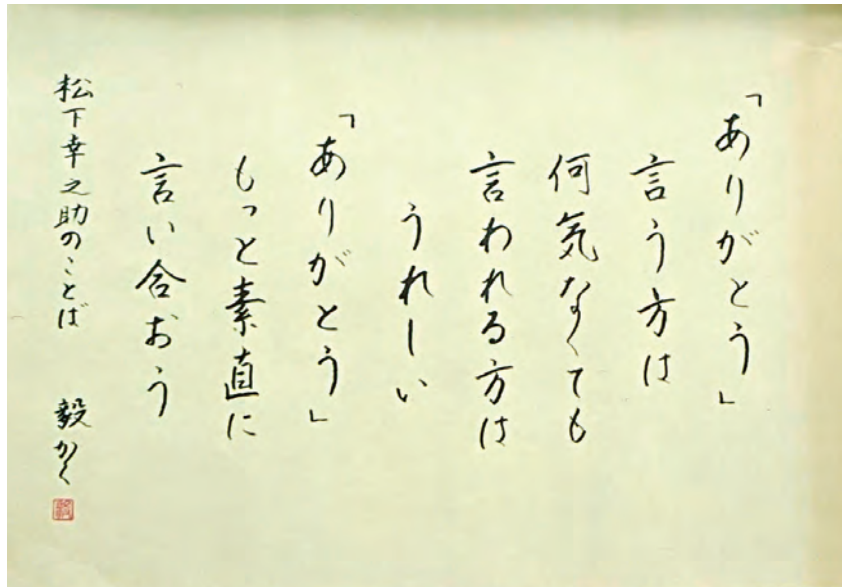 「ありがとう」
言う方は
何気なくても
言われる方は
うれしい
「ありがとう」
もっと素直に
言い合おう
松下幸之助のことば 毅かく